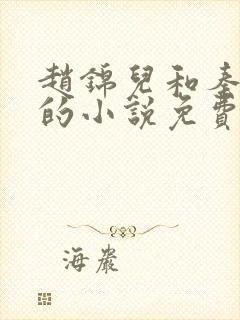 趙錦兒和秦
的小說免費
海巖